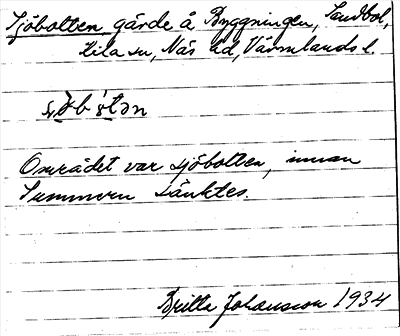 Sjöbotten, gärde å Byggningen, Sandbol,
Kila sn, Näs hd, Värmlands l.
Området var sjöbotten, innan
Summeru sänktes.
Britta Johansson 1934